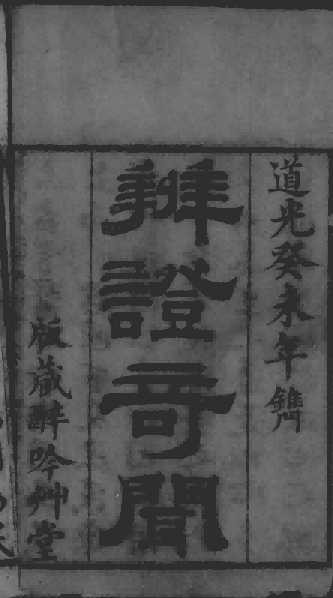 道光癸未年鐫
辨證奇聞
版藏醉吟艸堂